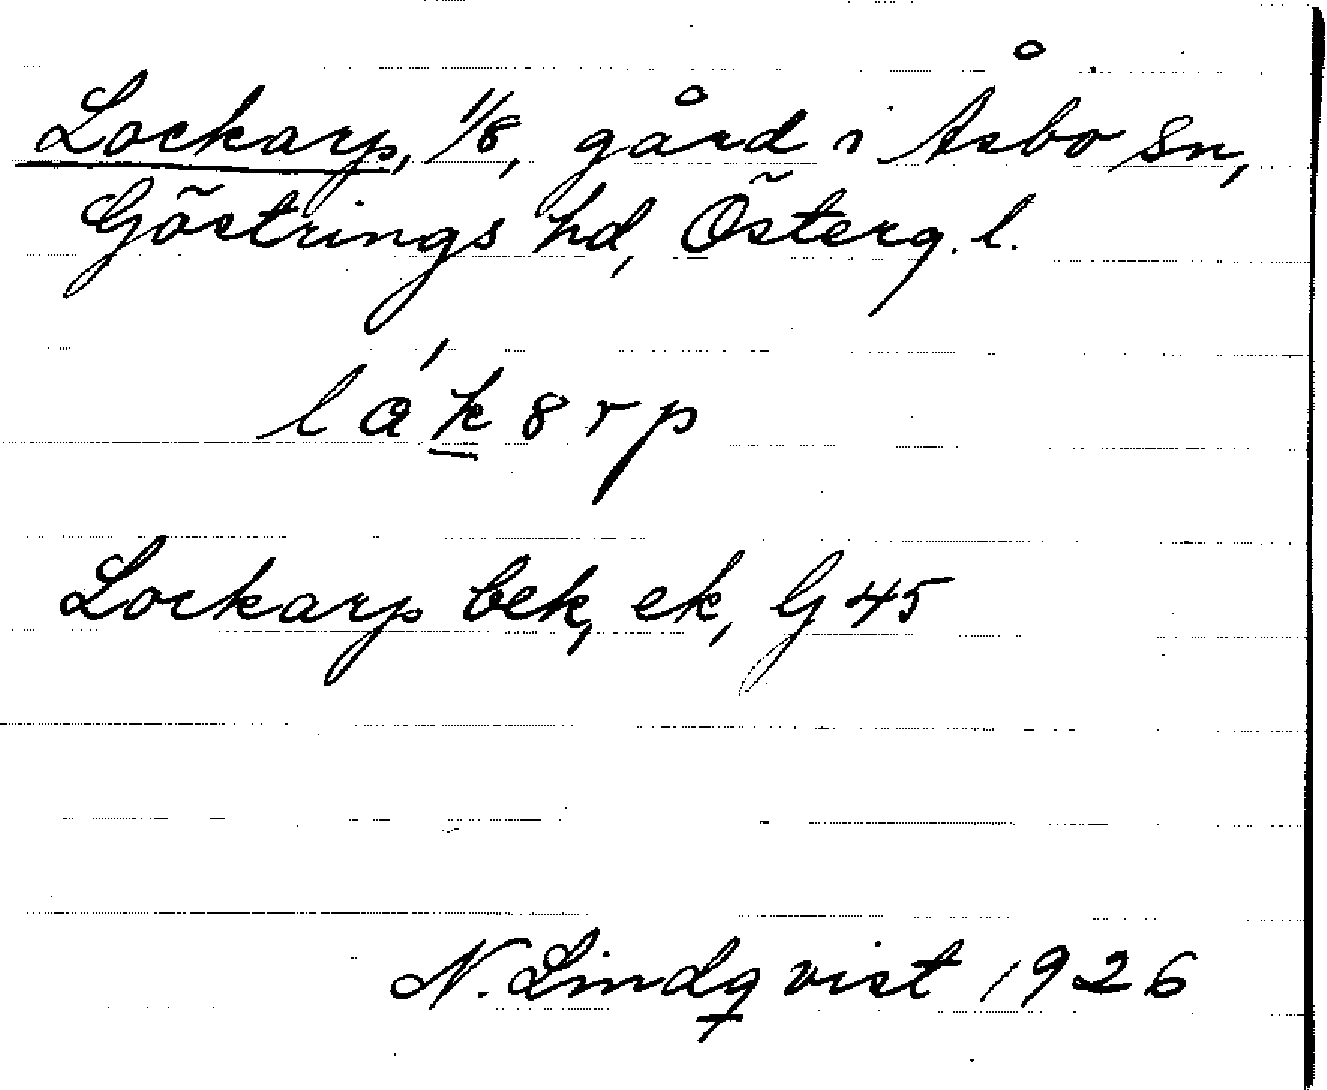 Lockarp, 1/8, gård i Åsbo sn,
Göstrings hd, Österg. l.
lák8rp
Lockarp bek, ek, G 45
N. Lindqvist 1926